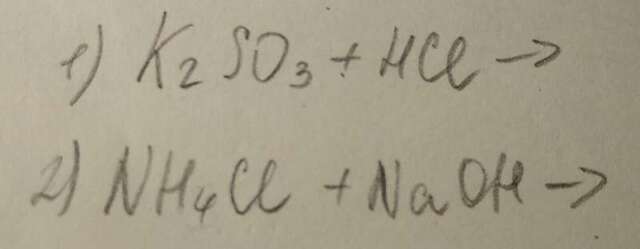 1) K₂SO₃ + HCl →
2) NH₄Cl + NaOH →